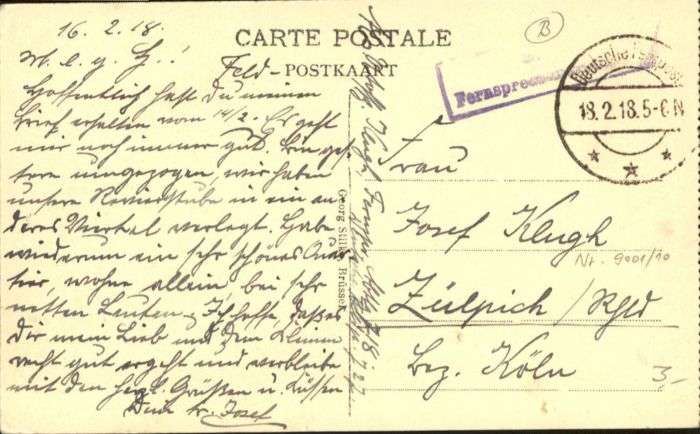 16. 2. 18.
CARTE POSTALE
Feld-POSTKAART
M. l. g. H..!
Hoffentlich hast du meinen
Brief erhalten vom 14/2. Es geht
mir noch immer gut. Bin ges-
tern umgezogen, wir haben
unsere Revierstube in ein an
deres Viertel verlegt. Habe
wiederum ein sehr schönes Quar
tier, wohne allein bei sehr
netten Leuten. Ich hoffe, daß es
Dir mein Lieb und dem Kleinen
recht gut ergeht und verbleibe
mit den herzl. Grüßen u. Küssen
Dein tr. Josef
Georg Stilke, Brüssel
Klugh
Fernsprec
Deutsche
18.2.18.5-6N
B
Frau
Josef Klugh
Nr. 9001/10
Zülpich / Rhld
Bez. Köln
3,-